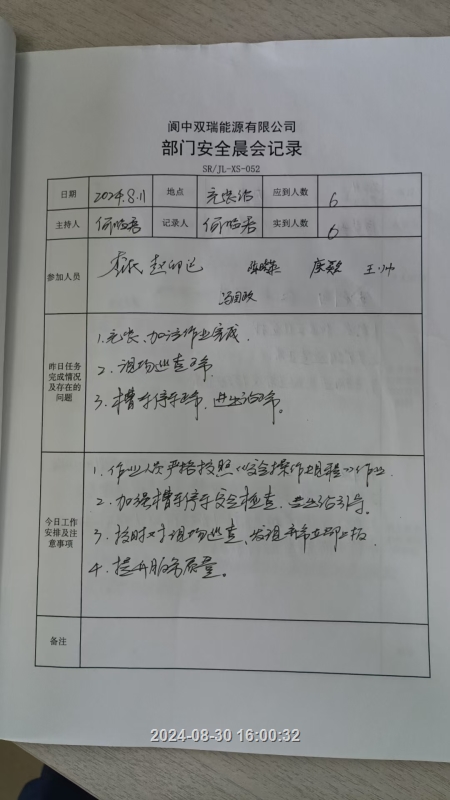 阆中双瑞能源有限公司
部门安全晨会记录
SR/JL-XS-052
日期 2024.8.11 地点 充装站 应到人数 6
主持人 记录人 实到人数 6
参加人员
昨日任务完成情况及存在的问题
1.充装、加注作业完成.
2.现场巡查正常.
3.槽车停车正常,进出站正常。
今日工作安排及注意事项
1.作业人员严格按照《安全操作规程》作业.
2.加强槽车停车安全检查、进出站引导.
3.按时对现场巡查、发现异常立即上报.
4.提升服务质量。
备注
2024-08-30 16:00:32